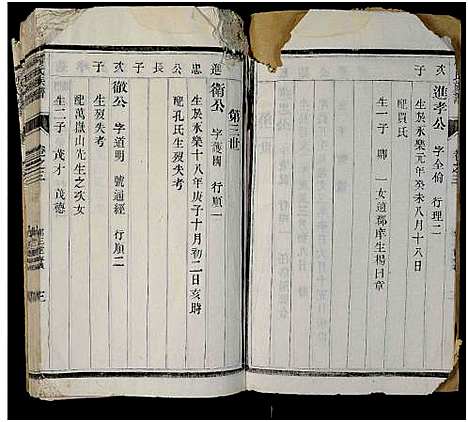 次子
進孝公 字全倫 行理二
生於永樂元年癸未八月十八日
配賈氏
生一子 一女適郡庠生楊日章
第三世
進忠公長子
衛公 字護國 行順一
生於永樂十八年庚子十月初二日亥時
配孔氏生歿失考
次子
徹公 字道明 號通經 行順二
生歿失考
配萬嶽山先生之次女
生二子 茂才 茂德